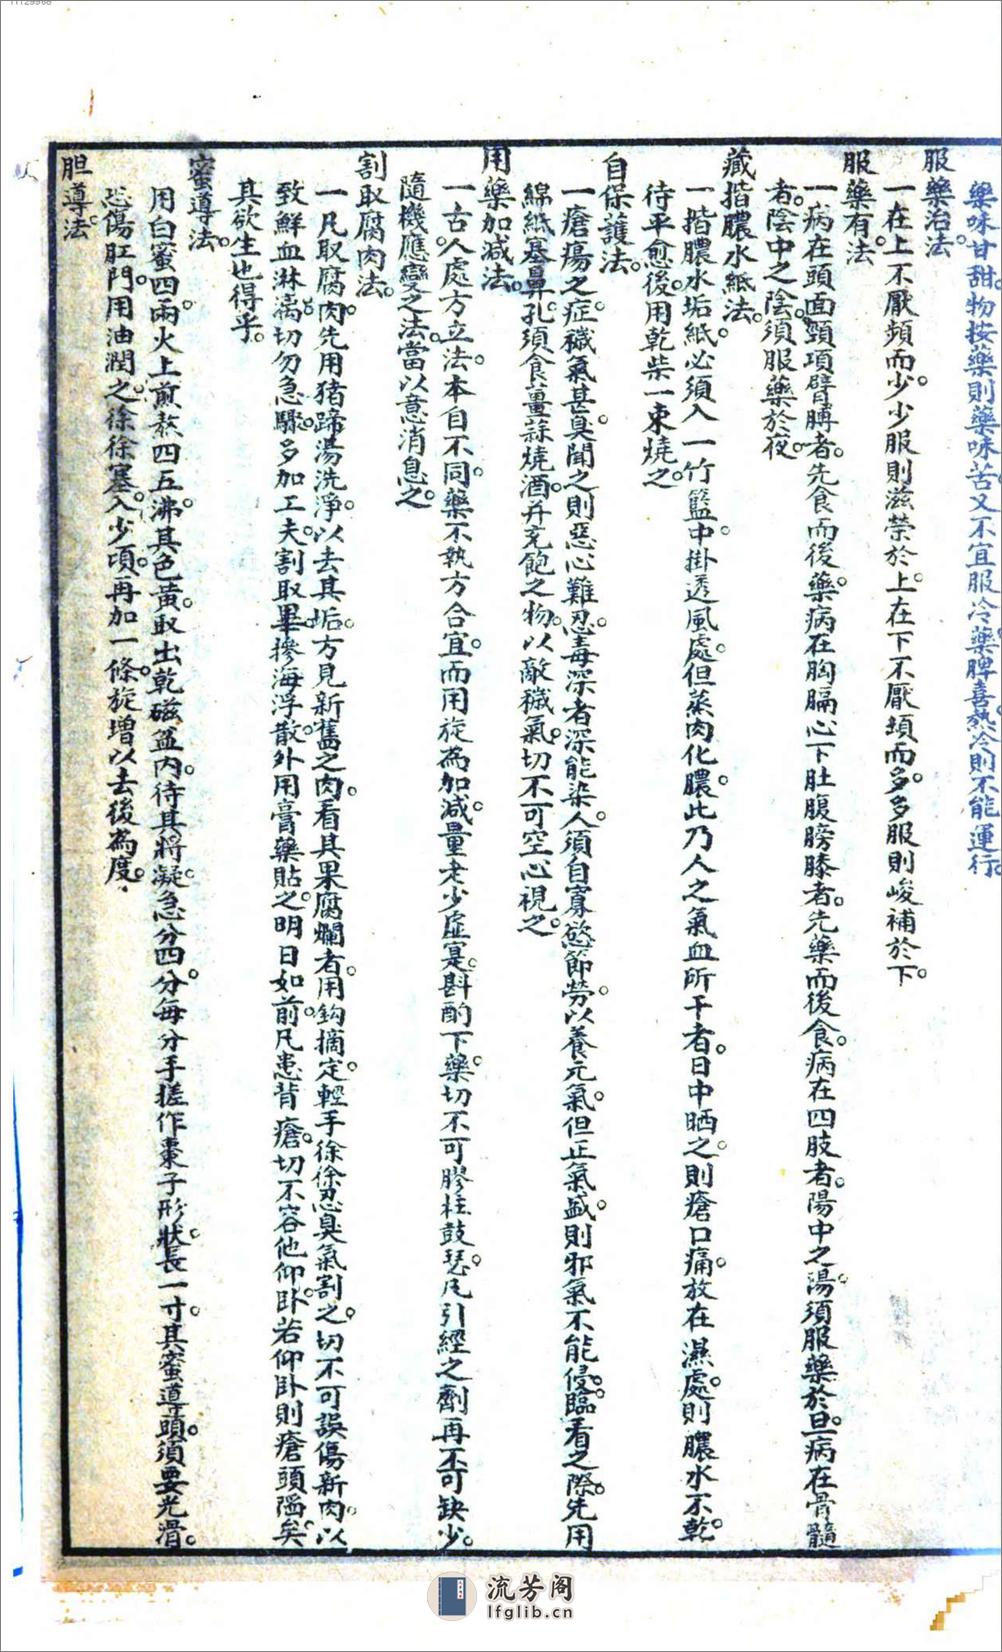 11129968
藥味甘甜。物按藥則藥味苦。又不宜服冷藥。脾喜熱。冷則不能運行。
服藥治法。
一在上不厭頻而少。少服則滋榮於上。在下不厭頻而多。多服則峻補於下。
服藥有法。
一病在頭面頸項臂膊者。先食而後藥。病在胸膈心下肚腹膀膝者。先藥而後食。病在四肢者。陽中之湯。須服藥於旦。病在骨髓
者。陰中之陰。須服藥於夜。
藏揩膿水紙法。
一揩膿水垢紙。必須入一竹籃。中掛透風處。但蒸肉化膿。此乃人之氣血所干者。日中晒之。則瘡口痛。放在濕處。則膿水不乾。
待平愈後。用乾柴一束燒之。
自保護法。
一瘡瘍之症。穢氣甚臭。聞之則惡心難忍。毒深者深能染人。須自寡慾節勞。以養元氣。但正氣盛。則邪氣不能侵。臨看之際。先用
綿紙塞鼻孔。須食薑蒜燒酒。并充飽之物。以敵穢氣。切不可空心視之。
用藥加減法。
一古人處方立法。本自不同。藥不執方。合宜而用。旋為加減。量老少虛寔。斟酌下藥。切不可膠柱鼓瑟。凡引經之劑。再不可缺少。
隨機應變之法。當以意消息之。
割取腐肉法。
一凡取腐肉。先用猪蹄湯洗淨。以去其垢。方見新舊之肉。看其果腐爛者。用鈎摘定。輕手徐徐忍臭氣割之。切不可誤傷新肉。以
致鮮血淋漓。切勿急驟。多加工夫。割取畢。摻海浮散。外用膏藥貼之。明日如前。凡患背瘡。切不容他仰卧。若仰卧則瘡頭陷矣。
其欲生也得乎。
蜜導法。
用白蜜四兩。火上煎熬四五沸。其色黃。取出乾磁盆内。待其將凝。急分四分。每分手搓作棗子形狀。長一寸。其蜜導頭須要光滑。
恐傷肛門。用油潤之。徐徐塞入。少頃。再加一條。旋增以去後為度。
胆導法。
流芳阁
lfglib.cn